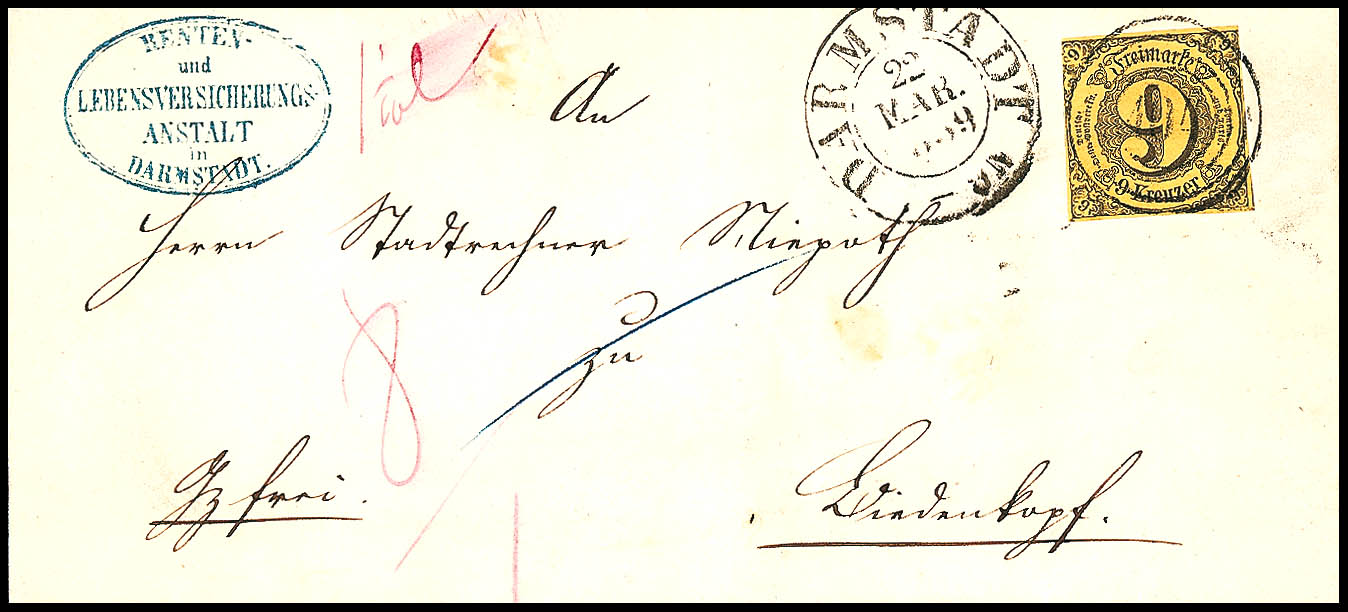 RENTEN-
und
LEBENSVERSICHERUNGS-
ANSTALT
in
DARMSTADT.
DARMSTADT
22
MAR.
9
9
9
Freimarke
9
9 Kreuzer
9
9
An
Herrn Stadtrechner
zu
8
frei.
Biedenkopf.